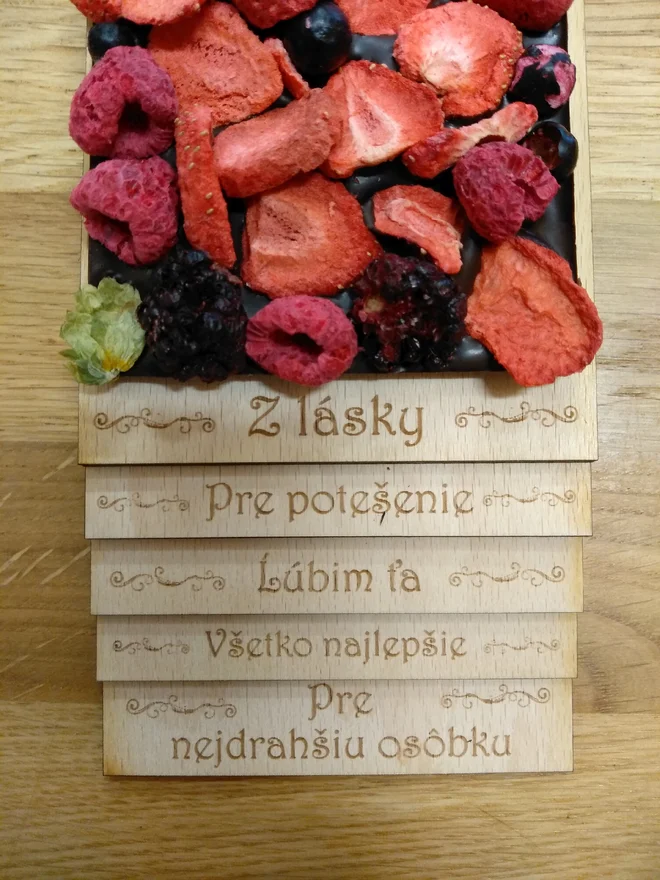 Z lásky
Pre potešenie
Ĺúbim ťa
Všetko najlepšie
Pre
nejdrahšiu osôbku